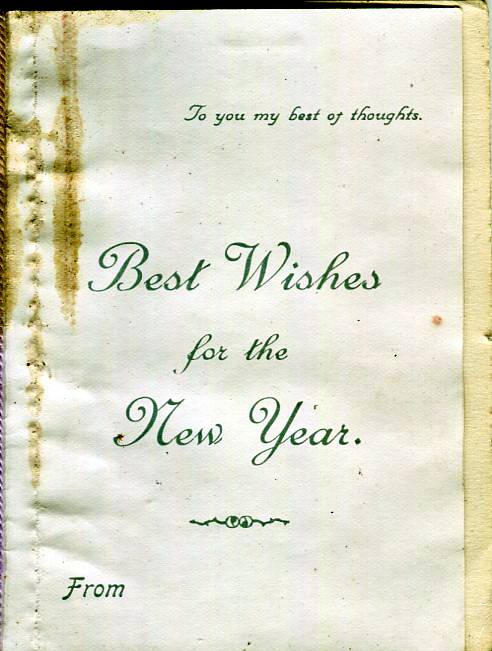 To you my best of thoughts.
Best Wishes
for the
New Year.
From